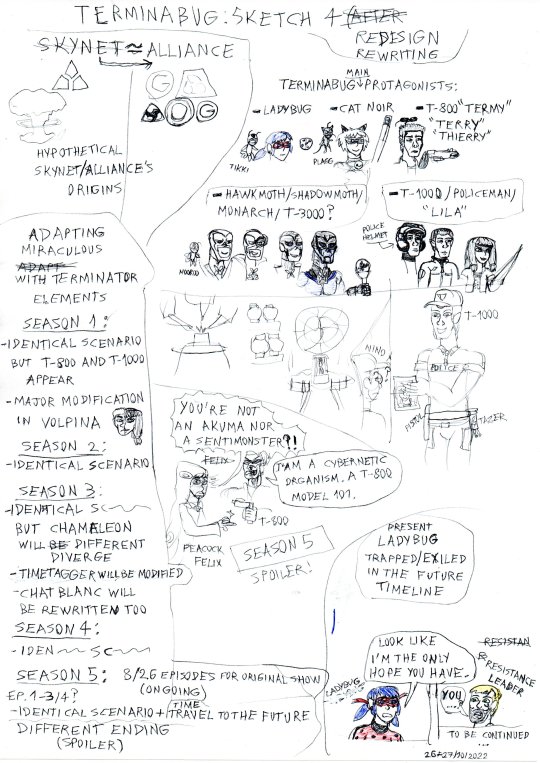 TERMINABUG: SKETCH 4 (AFTER
REDESIGN
REWRITING
SKYNET ≈ ALLIANCE
HYPOTHETICAL
SKYNET/ALLIANCE'S
ORIGINS
MAIN
TERMINABUG PROTAGONISTS:
- LADYBUG - CAT NOIR - T-800 "TERMY"
"TERRY"
"THIERRY"
TIKKI
PLAGG
- HAWKMOTH/SHADOWMOTH/
MONARCH/T-3000?
- T-1000/POLICEMAN/
"LILA"
POLICE
HELMET
NOOROO
ADAPTING
MIRACULOUS
ADAPT
WITH TERMINATOR
ELEMENTS
SEASON 1:
-IDENTICAL SCENARIO
BUT T-800 AND T-1000
APPEAR
-MAJOR MODIFICATION
IN VOLPINA
SEASON 2:
-IDENTICAL SCENARIO
SEASON 3:
-IDENTICAL SC
BUT CHAMELEON
WILL BE DIFFERENT
DIVERGE
-TIMETAGGER WILL BE MODIFIED
-CHAT BLANC WILL
BE REWRITTEN TOO
SEASON 4:
-IDEN SC
SEASON 5: 8/26 EPISODES FOR ORIGINAL SHOW
(ONGOING)
EP. 1-3/4?
-IDENTICAL SCENARIO + TIME TRAVEL TO THE FUTURE
DIFFERENT ENDING
(SPOILER)
NINO
?
T-1000
POLICE
PISTOL
TAZER
YOU'RE NOT
AN AKUMA NOR
A SENTIMONSTER?!
FELIX
I'AM A CYBERNETIC
ORGANISM. A T-800
MODEL 101.
T-800
PEACOCK
FELIX
SEASON 5
SPOILER!
PRESENT
LADYBUG
TRAPPED/EXILED
IN THE FUTURE
TIMELINE
LOOK LIKE
I'M THE ONLY
HOPE YOU HAVE.
LADYBUG
RESISTAN
RESISTANCE
LEADER
YOU
...?
TO BE CONTINUED
...
26+27/10/2022